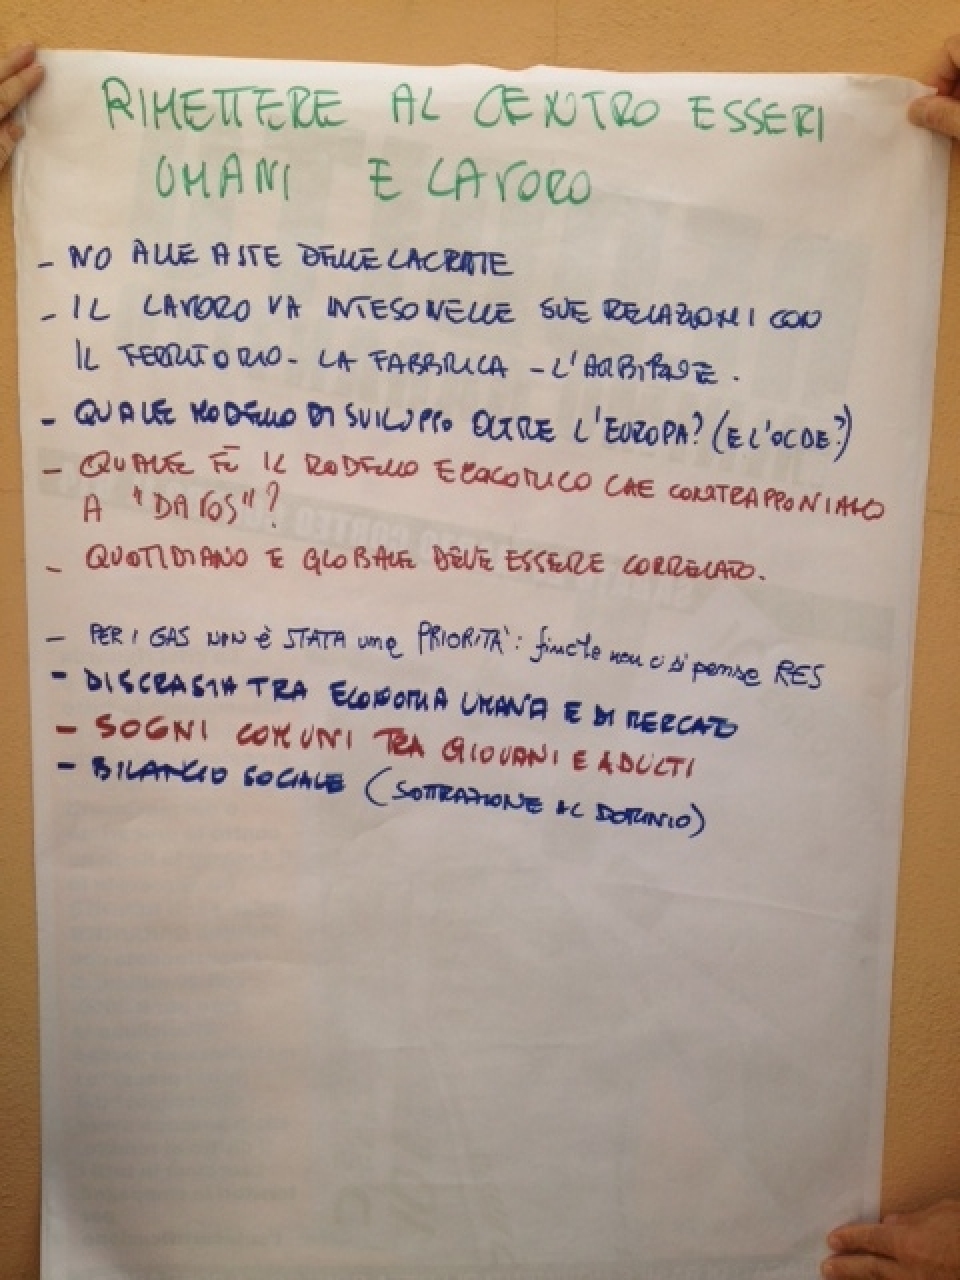 RIMETTERE AL CENTRO ESSERI
UMANI E LAVORO
- NO ALLE ASTE DELLE LACRATE
- IL LAVORO VA INTESO NELLE SUE RELAZIONI CON
IL TERRITORIO - LA FABBRICA - L'ARBITRIO.
- QUALE MODELLO DI SVILUPPO OLTRE L'EUROPA? (E L'OCDE?)
- QUALE È IL MODELLO ECONOMICO CHE CONTRAPPONIAMO
A "DAVOS"?
- QUOTIDIANO E GLOBALE DEVE ESSERE CORRELATO.
- PER I GAS NON è STATA una PRIORITA': finche non ci si pensa RES
- DISCRASIA TRA ECONOMIA UMANA E DI MERCATO
- SOGNI COMUNI TRA GIOVANI E ADULTI
- BILANCIO SOCIALE (SOTTRAZIONE AL DOMINIO)